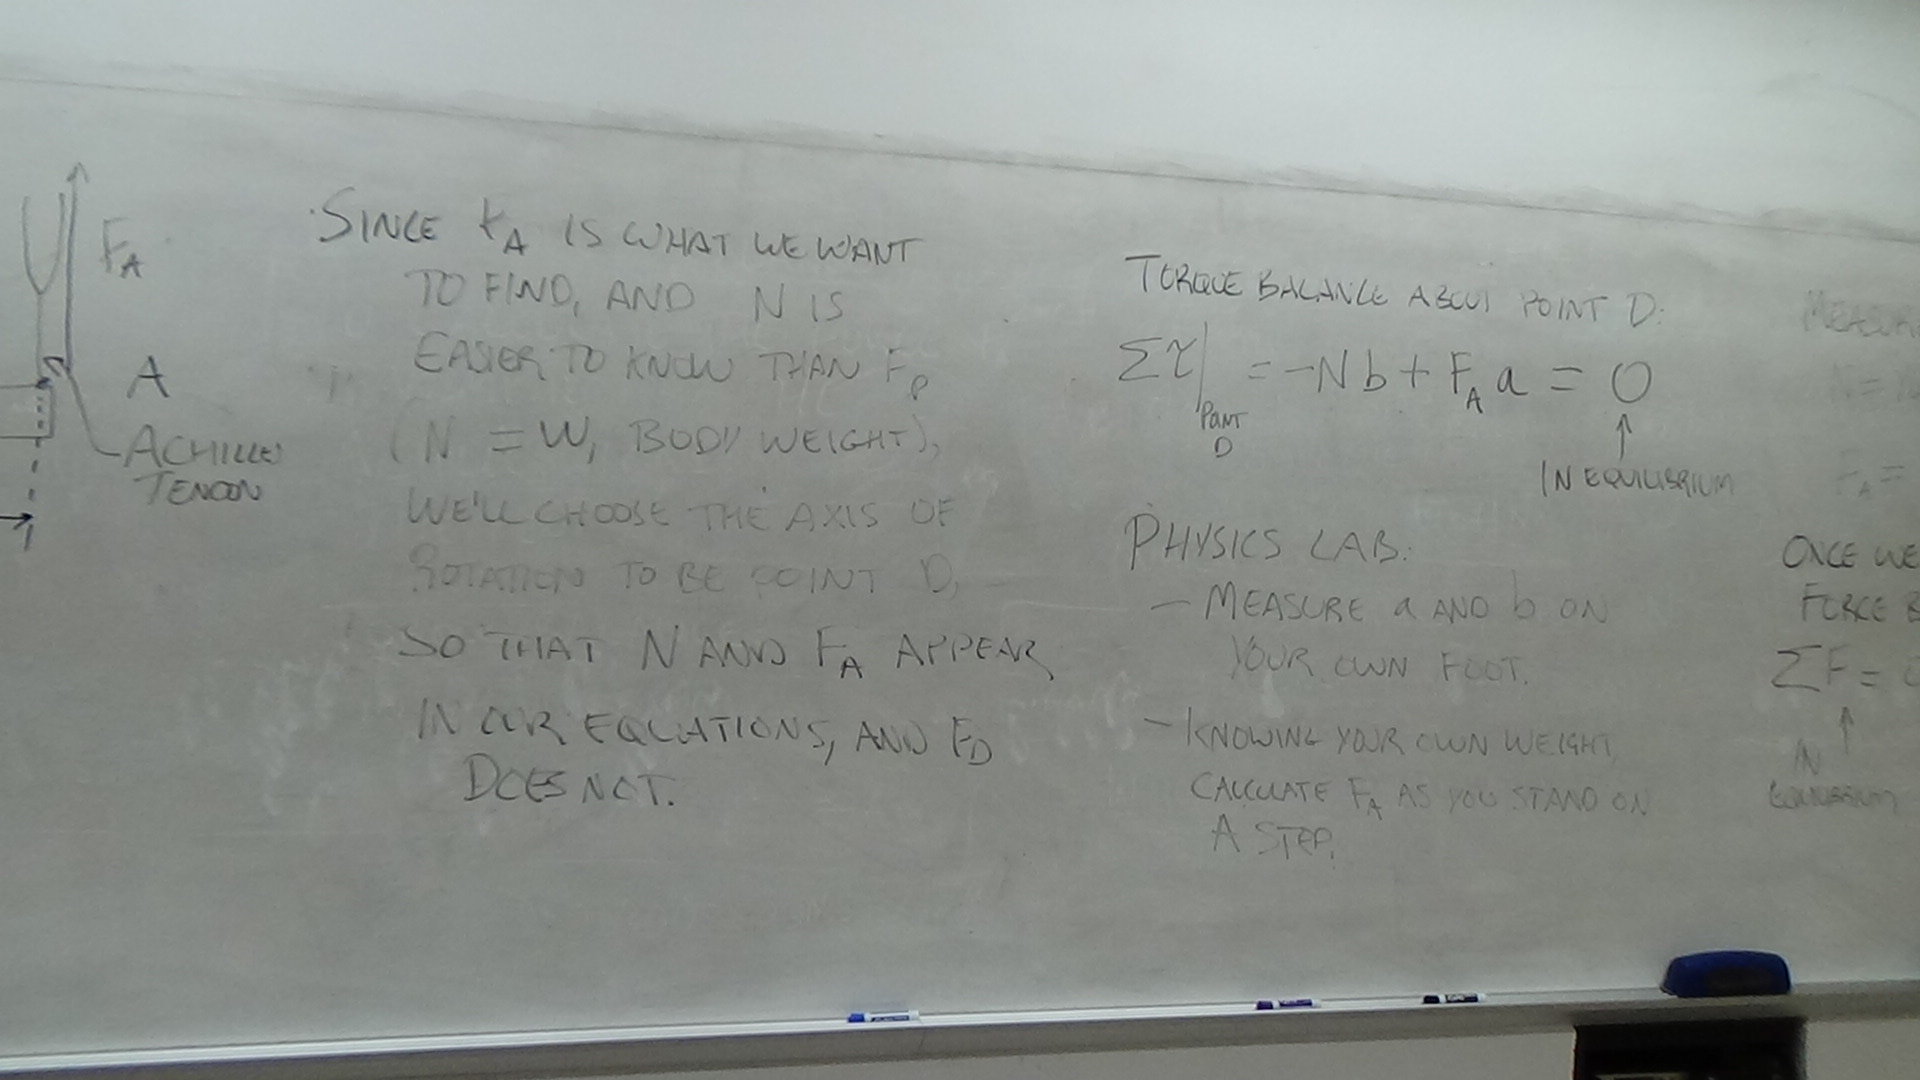 F_A
A
ACHILLES
TENDON
SINCE F_A IS WHAT WE WANT
TO FIND, AND N IS
EASIER TO KNOW THAN F_D
(N = W, BODY WEIGHT),
WE'LL CHOOSE THE AXIS OF
ROTATION TO BE POINT D,
SO THAT N AND F_A APPEAR
IN OUR EQUATIONS, AND F_D
DOES NOT.
TORQUE BALANCE ABOUT POINT D:
Στ| = -Nb + F_A a = 0
POINT
D
↑
IN EQUILIBRIUM
PHYSICS LAB:
- MEASURE a AND b ON
YOUR OWN FOOT.
- KNOWING YOUR OWN WEIGHT,
CALCULATE F_A AS YOU STAND ON
A STEP.
MEASUR
N =
F_A =
ONCE WE
FORCE B
ΣF = 0
↑
IN
EQUILIBRIUM